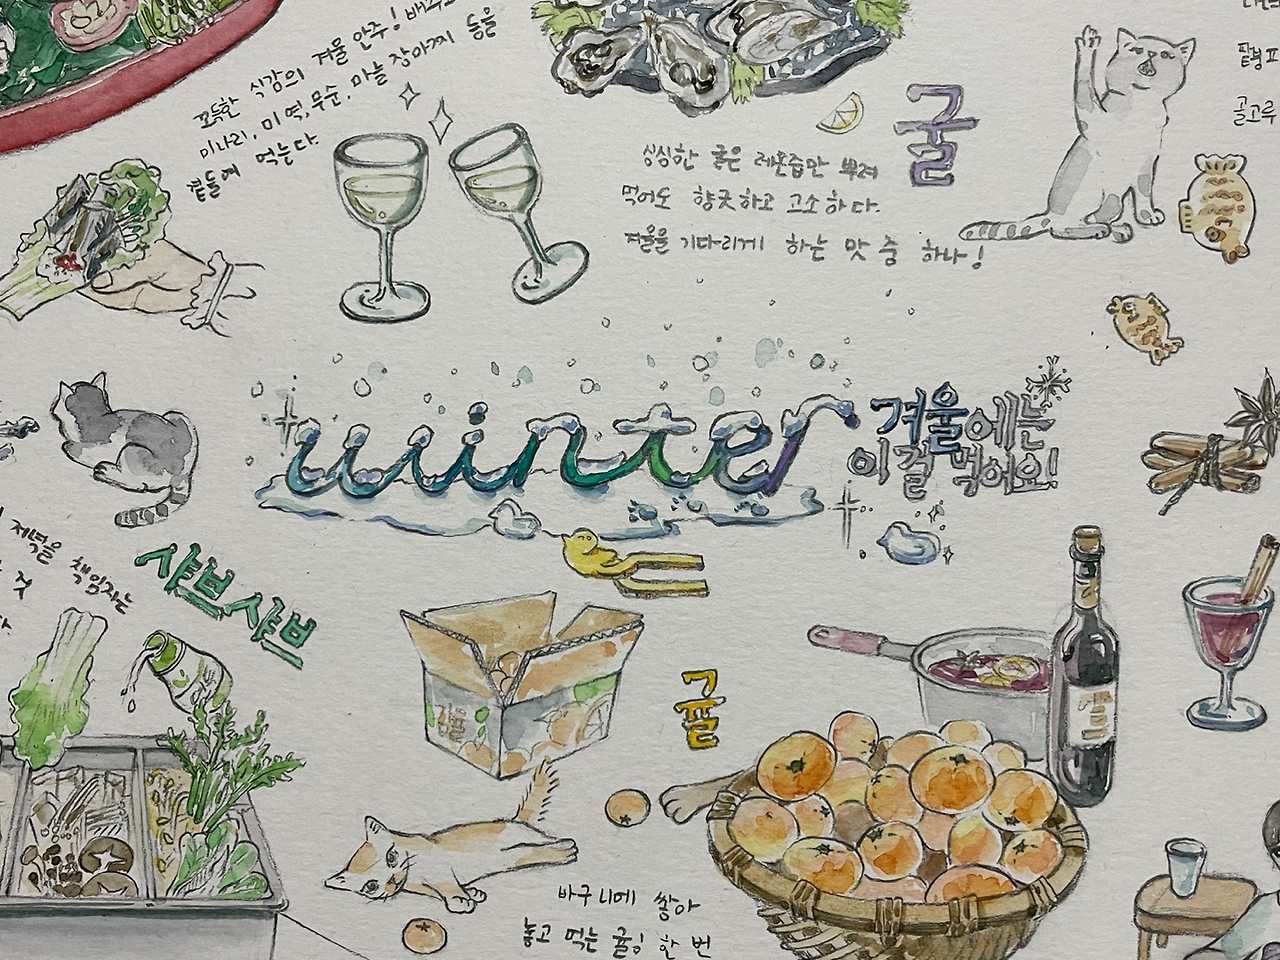 꼬득한 식감의 겨울 안주! 배추와
미나리, 미역, 무순, 마늘 장아찌 등을
곁들여 먹는다.
굴
싱싱한 굴은 레몬즙만 뿌려
먹어도 향긋하고 고소하다.
겨울을 기다리게 하는 맛 중 하나!
골고루
winter
겨울에는
이걸 먹어요!
저녁을 책임지는
샤브샤브
감귤
귤
바구니에 쌓아
놓고 먹는 귤! 한 번